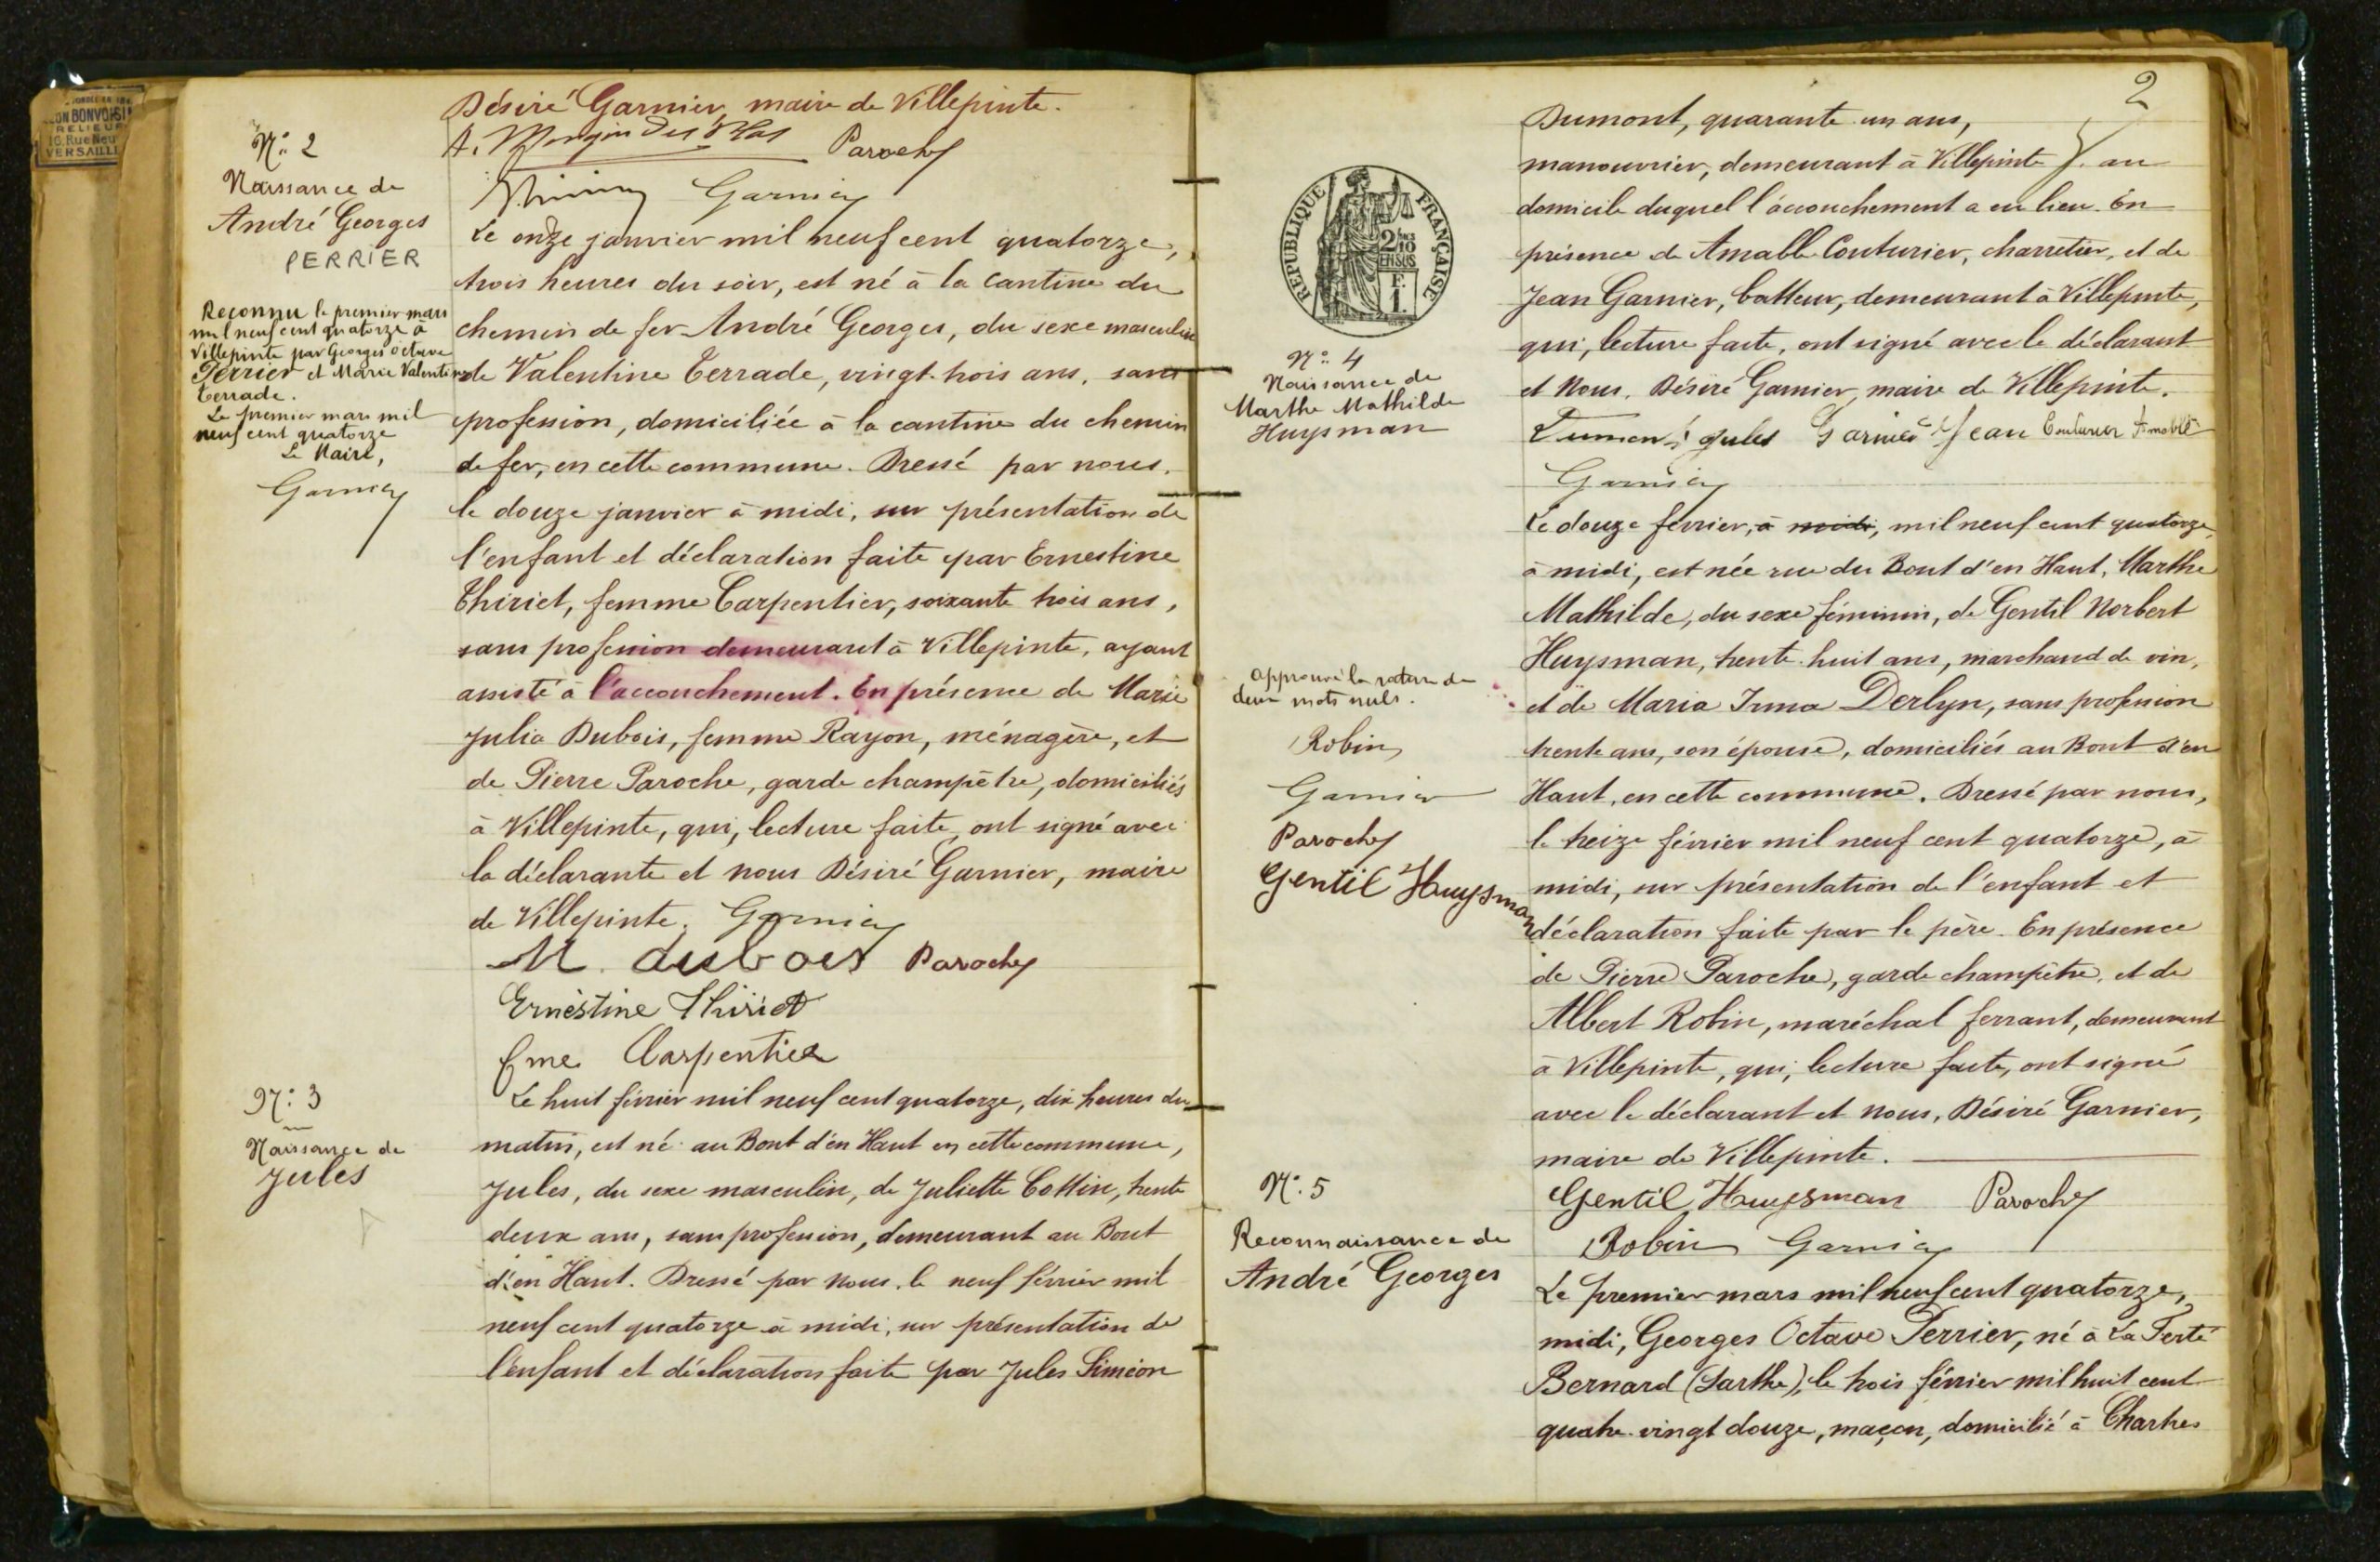 BONVOISI
RELIEUR
16, Rue Neu
VERSAILL
Désiré Garnier, maire de Villepinte.
Paroche
Garnier
N° 2
Naissance de
André Georges
PERRIER
Reconnu le premier mars
mil neuf cent quatorze à
Villepinte par Georges Octave
Perrier et Marie Valentine
Terrade.
Le premier mars mil
neuf cent quatorze
Le Maire,
Garnier
Le onze janvier mil neuf cent quatorze,
trois heures du soir, est né à la cantine du
chemin de fer André Georges, du sexe masculin
de Valentine Terrade, vingt-trois ans, sans
profession, domiciliée à la cantine du chemin
de fer, en cette commune. Dressé par nous.
le douze janvier à midi, sur présentation de
l'enfant et déclaration faite par Ernestine
Thiriet, femme Carpentier, soixante trois ans,
sans profession demeurant à Villepinte, ayant
assisté à l'accouchement. En présence de Marie
Julia Dubois, femme Rayon, ménagère, et
de Pierre Paroche, garde champêtre, domiciliés
à Villepinte, qui, lecture faite, ont signé avec
la déclarante et nous Désiré Garnier, maire
de Villepinte. Garnier
M. dubois Paroche
Ernèstine Thiriet
fme Carpentier
N° 3
Naissance de
Jules
Le huit février mil neuf cent quatorze, dix heures du
matin, est né au Bout d'en Haut en cette commune,
Jules, du sexe masculin, de Juliette Cottin, trente
deux ans, sans profession, demeurant au Bout
d'en Haut. Dressé par nous. le neuf février mil
neuf cent quatorze à midi, sur présentation de
l'enfant et déclaration faite par Jules Siméon
2
Dumont, quarante un ans,
manouvrier, demeurant à Villepinte au
domicile duquel l'accouchement a eu lieu. En
présence de Amable Couturier, charretier, et de
Jean Garnier, batteur, demeurant à Villepinte,
qui, lecture faite, ont signé avec le déclarant
et Nous, Désiré Garnier, maire de Villepinte.
Dumont jules Garnier Jean Couturier Amable
Garnier
RÉPUBLIQUE FRANÇAISE
2/10
EN SUS
F.
1.
N° 4
Naissance de
Marthe Mathilde
Huysman
approuvé la rature de
deux mots nuls.
Robin
Garnier
Paroche
Gentil Huysman
Le douze février, à midi, mil neuf cent quatorze,
à midi, est née rue du Bout d'en Haut, Marthe
Mathilde, du sexe féminin, de Gentil Norbert
Huysman, trente-huit ans, marchand de vin,
et de Maria Irma Derlyn, sans profession
trente ans, son épouse, domiciliés au Bout d'en
Haut, en cette commune. Dressé par nous,
le treize février mil neuf cent quatorze, à
midi, sur présentation de l'enfant et
déclaration faite par le père. En présence
de Pierre Paroche, garde champêtre, et de
Albert Robin, maréchal ferrant, demeurant
à Villepinte, qui, lecture faite, ont signé
avec le déclarant et nous, Désiré Garnier,
maire de Villepinte.
Gentil Huysman Paroche
Robin Garnier
N° 5
Reconnaissance de
André Georges
Le premier mars mil neuf cent quatorze,
midi, Georges Octave Perrier, né à La Ferté
Bernard (Sarthe), le trois février mil huit cent
quatre-vingt douze, maçon, domicilié à Chartres